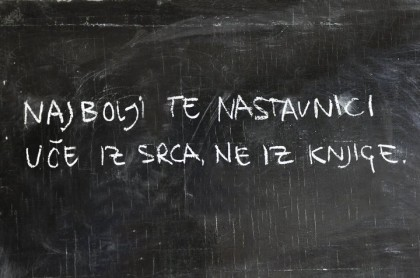 NAJBOLJI TE NASTAVNICI
UČE IZ SRCA, NE IZ KNJIGE.